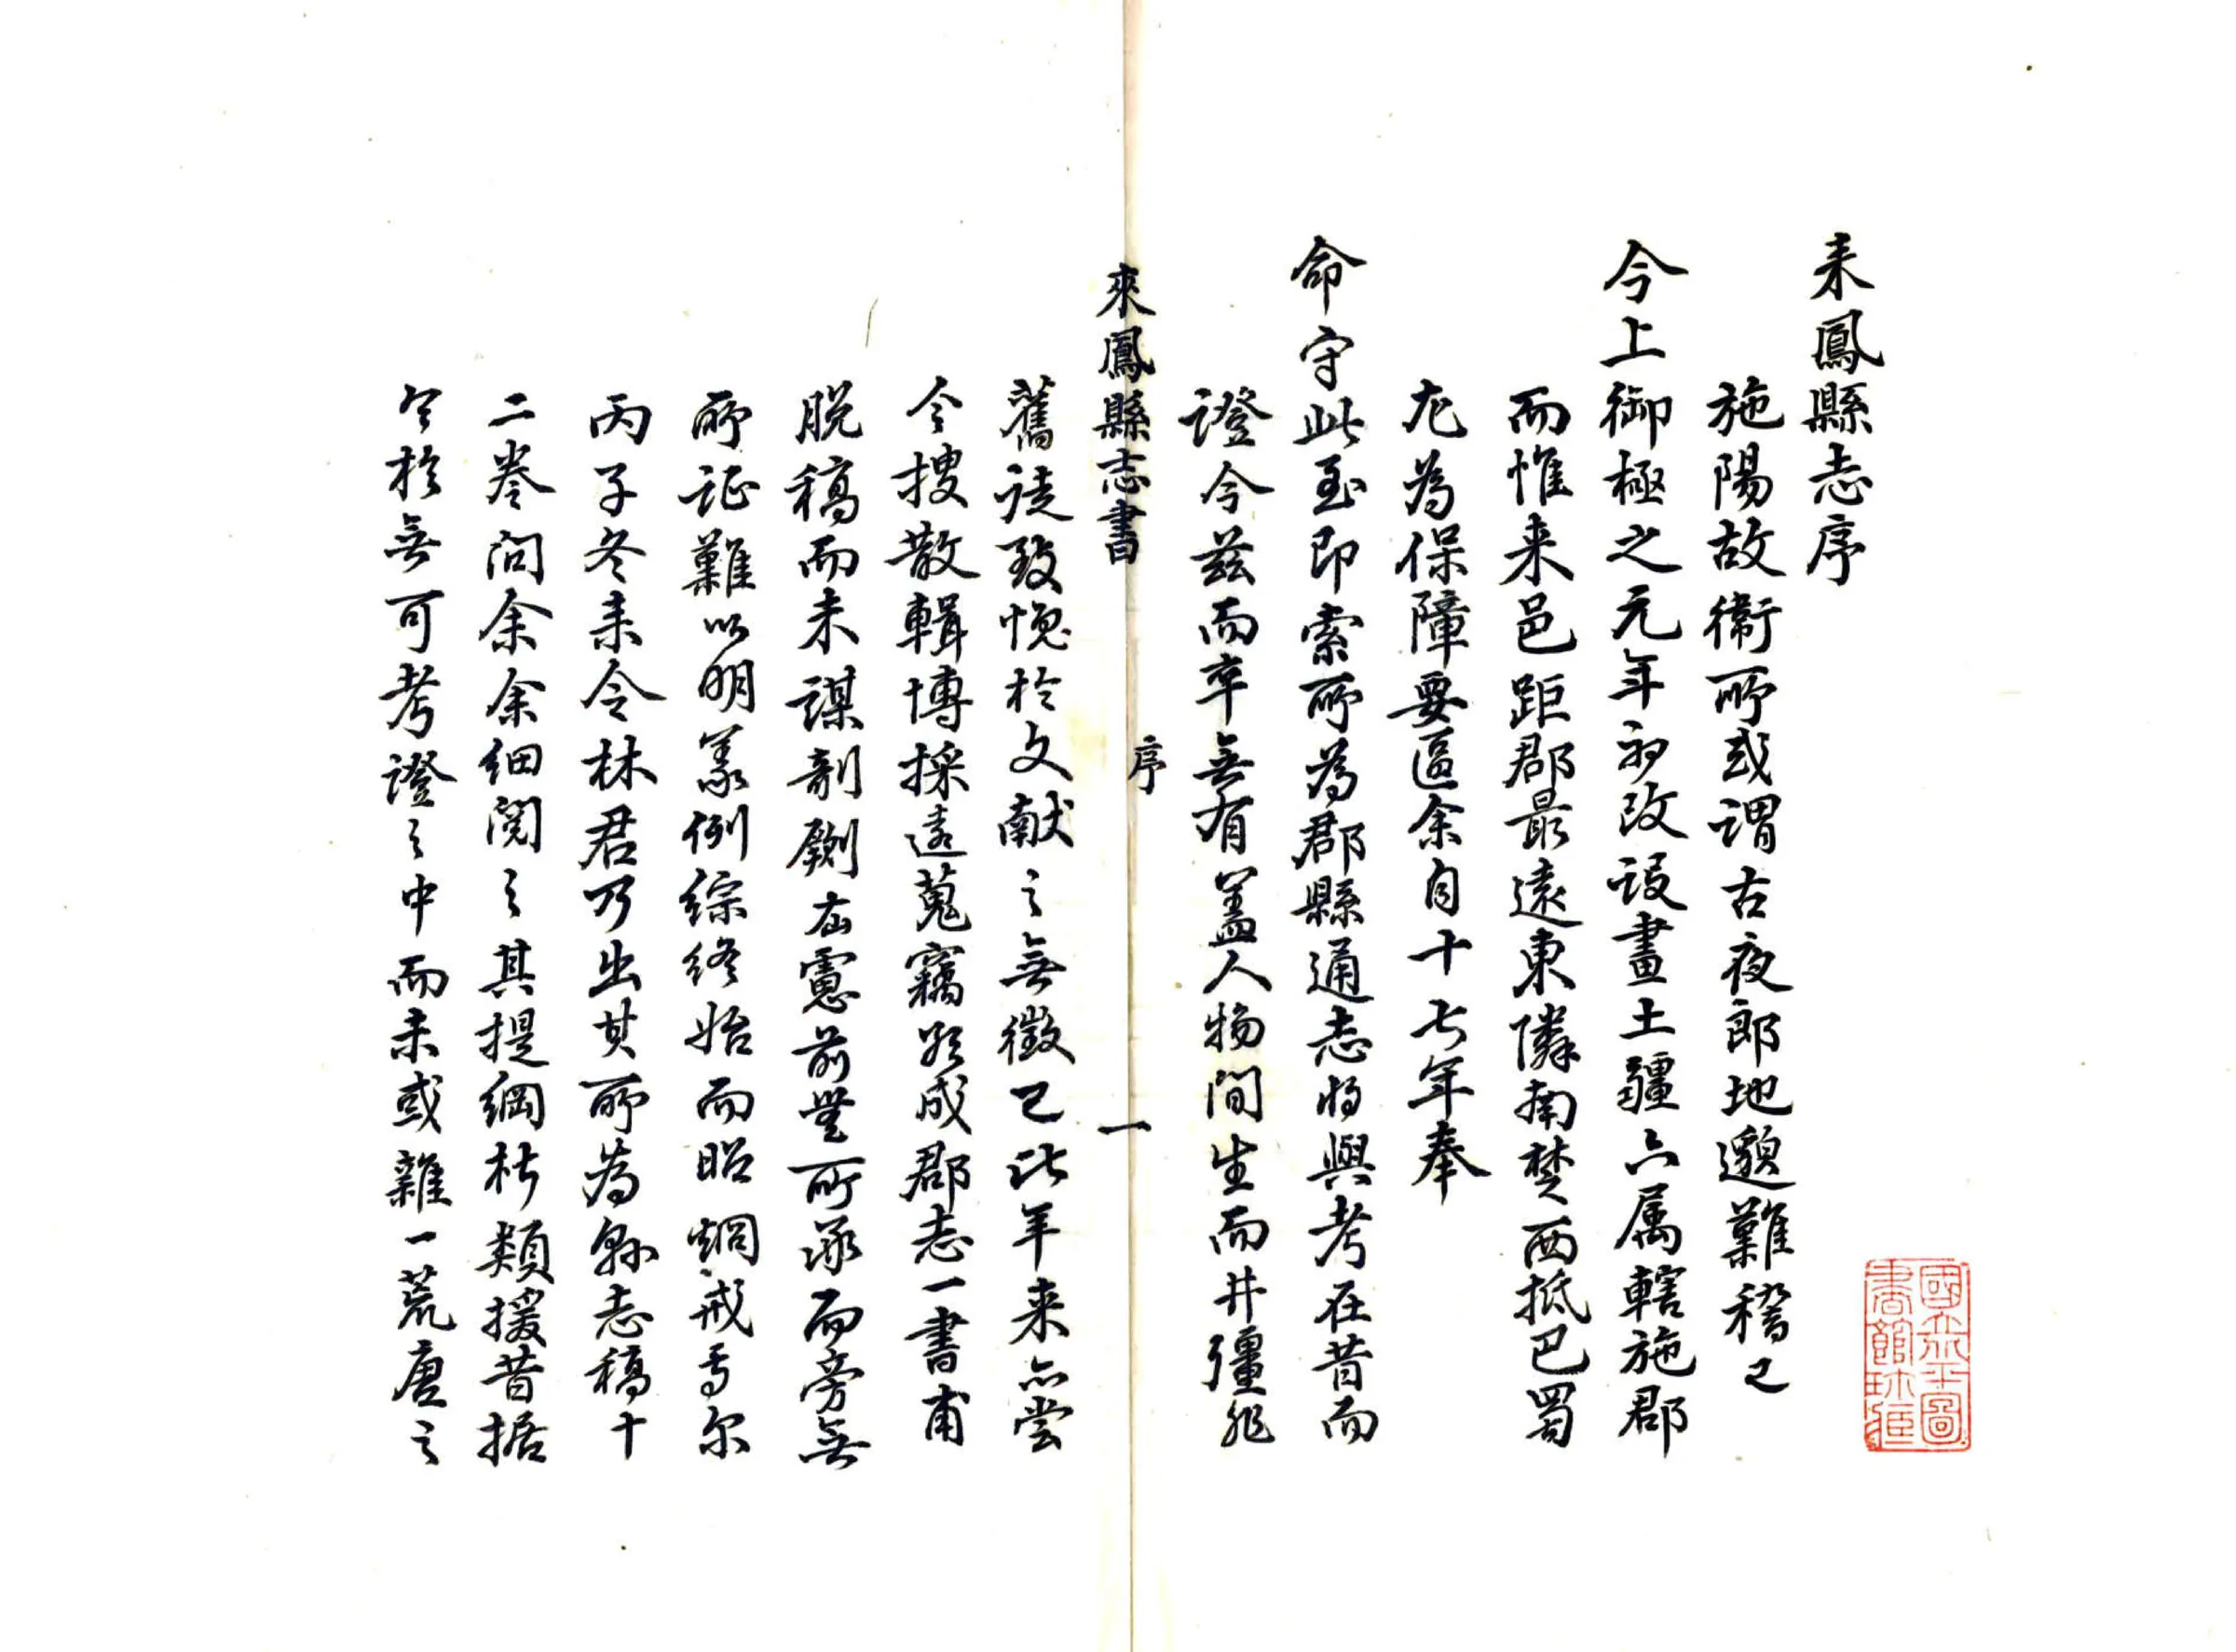 来鳳縣志序
施陽故衛所或謂古夜郎地邈難稽已
今上御極之元年初改設畫土疆六属轄施郡
而惟来邑距郡最遠東隣南楚西抵巴蜀
尤為保障要區余自十七年奉
命守此至即索所為郡縣通志將與考在昔而
證今兹而卒無有盖人物間生而井疆非
來鳳縣志書
序
一
舊徒致慨於文献之無徵已比年来亦嘗
令搜散輯博採遠蒐竊欲成郡志一書甫
脱稿而未謀剞劂在慮前無所承而旁無
所証難以明義例綜終始而昭炯戒焉尔
丙子冬来令林君乃出其所為縣志稿十
二卷問余余細閱之其提綱析類援昔据
今於無可考證之中而未或雜一荒唐之
國立北平圖書館珍藏